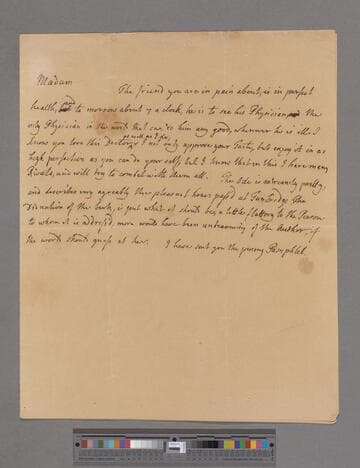 Madam
The friend you are in pain about, is in perfect
health, to morrow about 7 a clock, he is to see his Physician, the
only Physician in the world that can do him any good, whenever he is ill. I
know you love this Doctor, I not only approve your Taste, but enjoy it in as
as well as I for
high perfection as you can do your self, but I know that in this I have many
Rivals, and will try to combat with them all. The Ode is extreamly pretty,
and describes very agreably those pleasant hours pass'd at Tunbridge, the
of the , is just what it should be, a little flattery to the Person
to whom it is address'd, more would have been unbecoming of the Author, if
the world should guess at her. I have sent you the Pamphlet.